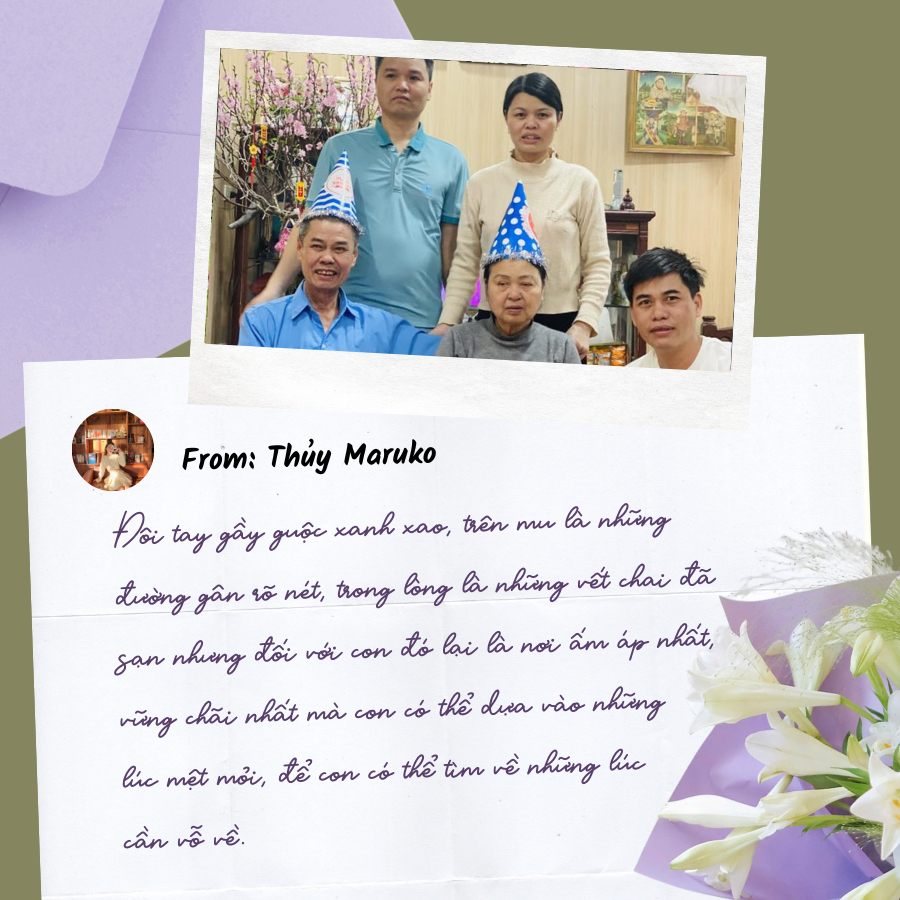 From: Thủy Maruko
Đôi tay gầy guộc xanh xao, trên mu là những
đường gân rõ nét, trong lòng là những vết chai đã
sạn nhưng đối với con đó lại là nơi ấm áp nhất,
vững chãi nhất mà con có thể dựa vào những
lúc mệt mỏi, để con có thể tìm về những lúc
cần vỗ về.